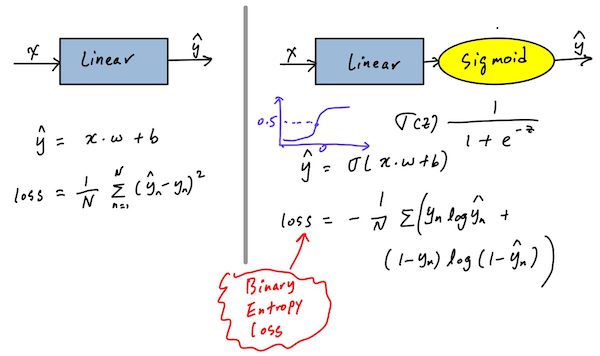 x
Linear
ŷ
ŷ = x·w + b
loss = 1/N Σ_{n=1}^{N} (ŷ_n - y_n)²
x
Linear
Sigmoid
ŷ
0.5
0
σ(z) 1/(1 + e^{-z})
ŷ = σ(x·w + b)
loss = - 1/N Σ(y_n log ŷ_n +
(1-y_n) log(1-ŷ_n))
Binary
Entropy
Loss